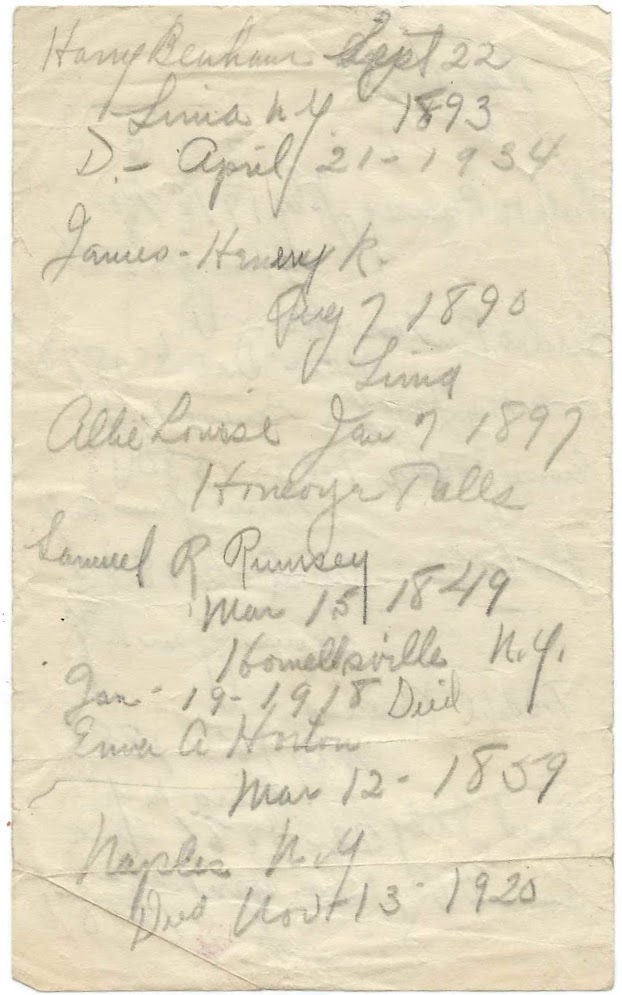 Harry Benham Sept 22
Lima N.Y 1893
D. - April 21 - 1934
James - Henry R.
Aug 7 1890
Lima
Allie Louise Jan 7 1897
Honeoye Falls
Samuel R Rumsey
Mar 15 1849
Hornellsville N.Y.
Jan - 19 - 1918 Died
Emma A Horton
Mar 12 - 1859
Naples N.Y
Died Nov 13 - 1920